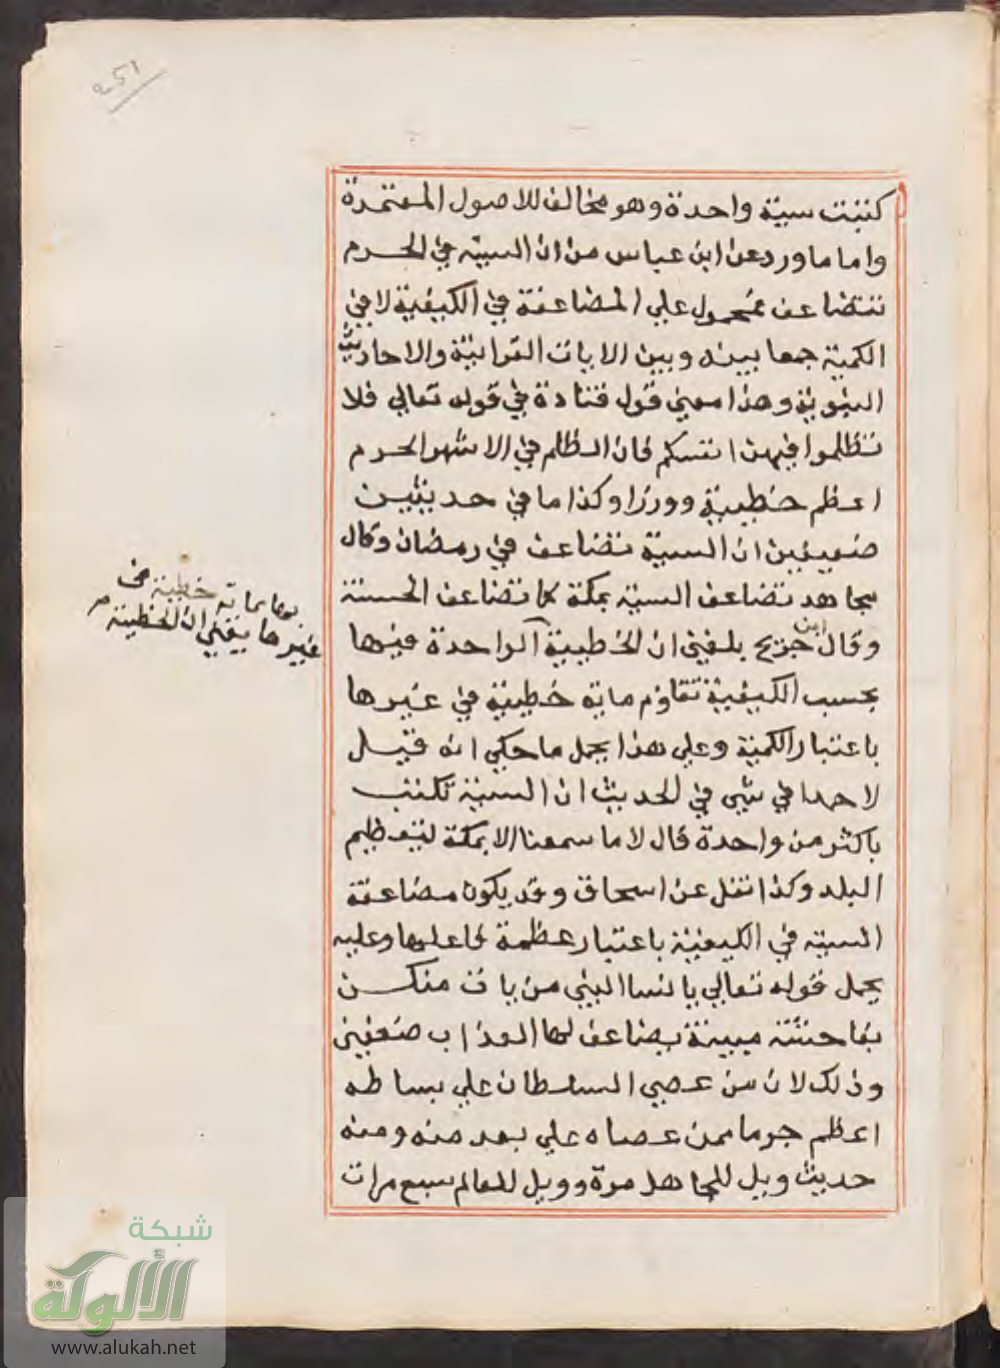 251
كتبت سيئة واحدة وهو مخالف للاصول المعتمدة
واما ما ورد عن ابن عباس من ان السيئة في الحرم
تتضاعف فمحمول علي المضاعفة في الكيفية لا في
الكمية جمعا بينه وبين الايات القرانية والاحاديث
النبوية وهذا معني قول قتادة في قوله تعالي فلا
تظلموا فيهن انفسكم فان الظلم في الاشهر الحرم
اعظم خطيئة ووزرا وكذا ما في حديثين
ضعيفين ان السيئة تضاعف في رمضان وقال
مجاهد تضاعف السيئة بمكة كما تضاعف الحسنة
وقال ابن جريج بلغني ان الخطيئة الواحدة فيها
بحسب الكيفية تقاوم ماية خطيئة في غيرها
باعتبار الكمية وعلي هذا يحمل ما حكي انه قيل
لاحمد افي شي في الحديث ان السيئة تكتب
باكثر من واحدة قال لا ما سمعنا الا بمكة لتعظيم
البلد وكذا نقل عن اسحاق وقد يكون مضاعفة
السيئة في الكيفية باعتبار عظمة فاعلها وعليه
يحمل قوله تعالي يا نسا النبي من يات منكن
بفاحشة مبينة يضاعف لها العذاب ضعفين
وذلك لان من عصي السلطان علي بساطه
اعظم جرما ممن عصاه علي بعد منه ومنه
حديث ويل للجاهل مرة وويل للعالم سبع مرات
بها بماية خطيئة في
غيرها يعني ان الخطيئة
شبكة
الألوكة
www.alukah.net